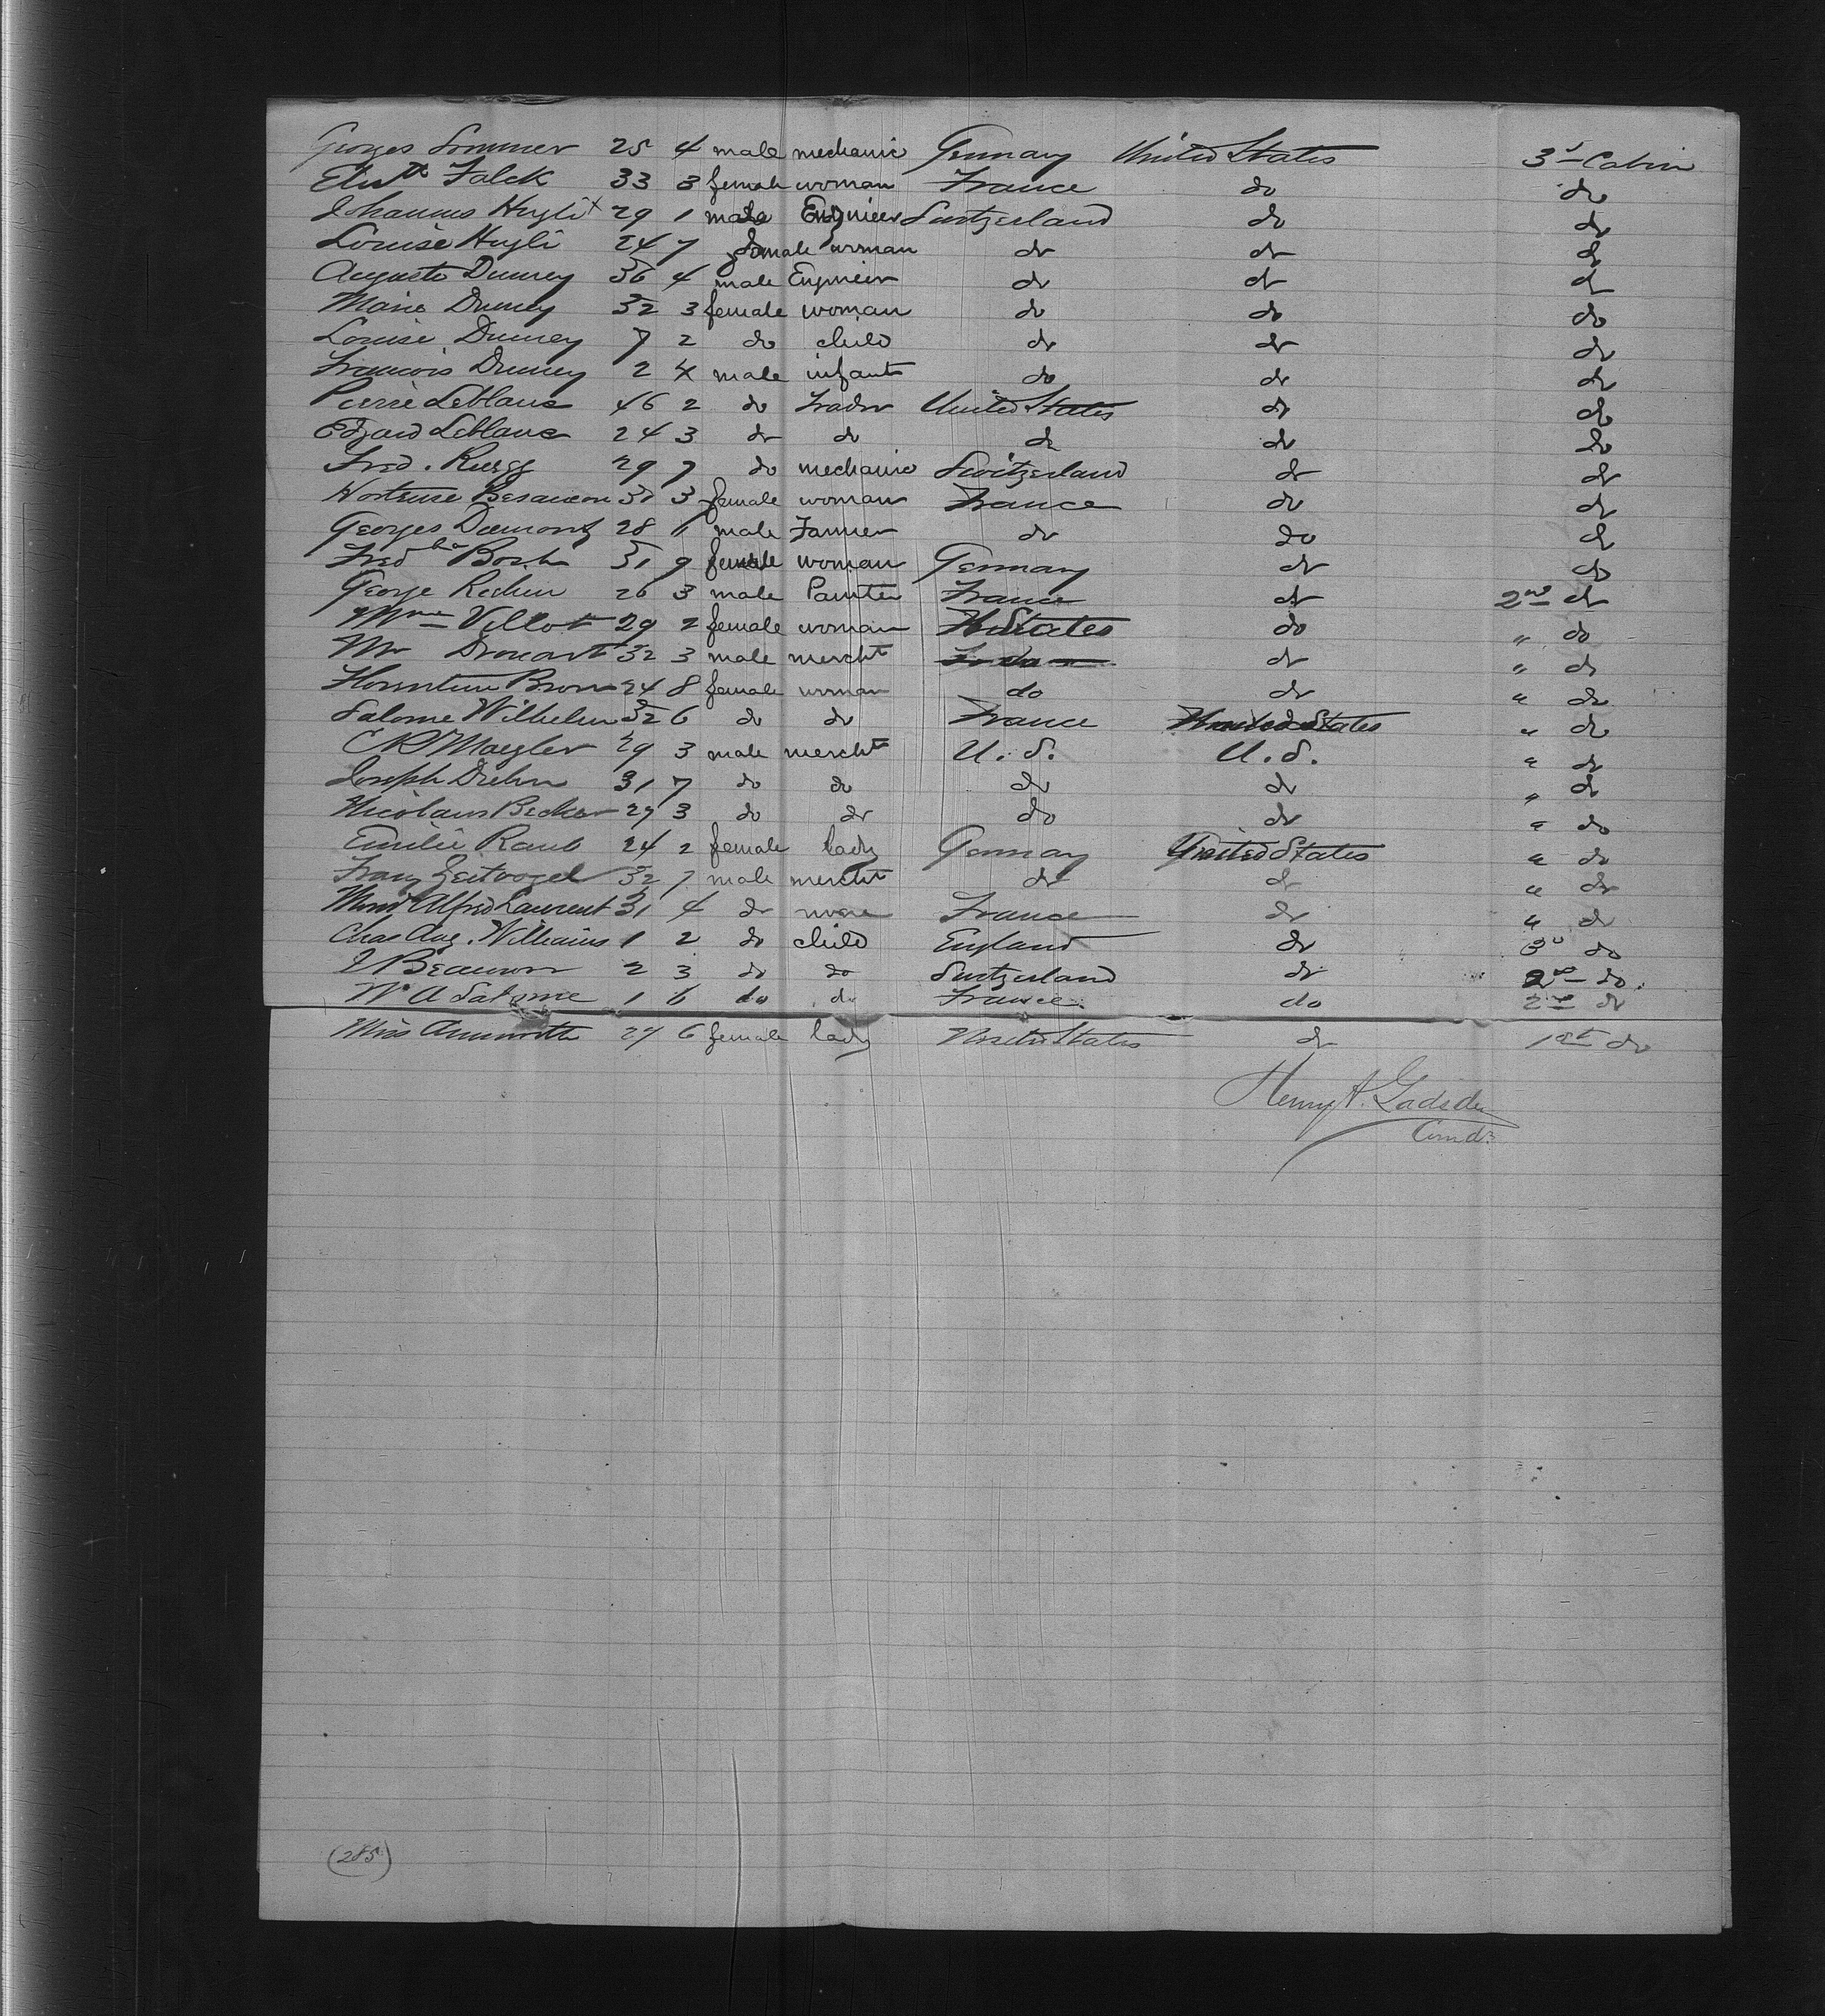 Georges Sommer 25 4 male mechanic Germany United States 3d Cabin
Elisth Falck 33 3 female woman France do do
Johannes Hugli x 29 1 male Engineer Switzerland do do
Louise Hugli 24 7 female woman do do do
Auguste Dumey 36 4 male Engineer do do do
Marie Dumey 32 3 female woman do do do
Louise Dumey 7 2 do child do do do
Francois Dumey 2 4 male infant do do do
Pierre Leblanc 46 2 do Trader United States do do
Edgard Leblanc 24 3 do do do do do
Fred. Ruegg 29 7 do mechanic Switzerland do do
Hortense Besancon 31 3 female woman France do do
Georges Dumont 28 11 male Farmer do do do
Fred Bosh 31 9 female woman Germany do do
George 26 3 male Painter France do 2nd do
Mme Villot 29 2 female woman U States do " do
Mr Drouart 32 3 male mercht do " do
Florentine Bron 24 8 female woman do do " do
Salome Wilhelm 32 6 do do France United States " do
Maegler 29 3 male mercht U. S. U. S. " do
Joseph Drehm 31 7 do do do do " do
Nicolaus Becker 27 3 do do do do " do
Emilie Raub 24 2 female lady Germany United States " do
Franz Geitvogel 32 7 male mercht do do " do
Alfred Laurent 31 4 do none France do " do
Chas Aug. Williams 1 2 do child England do 3d do
2 3 do do Switzerland do 2nd do.
A Salome 1 6 do do France. do 2nd do
Miss 24 6 female lady United States do 1st do
Henry A. Gadsden
Comdr
(285)